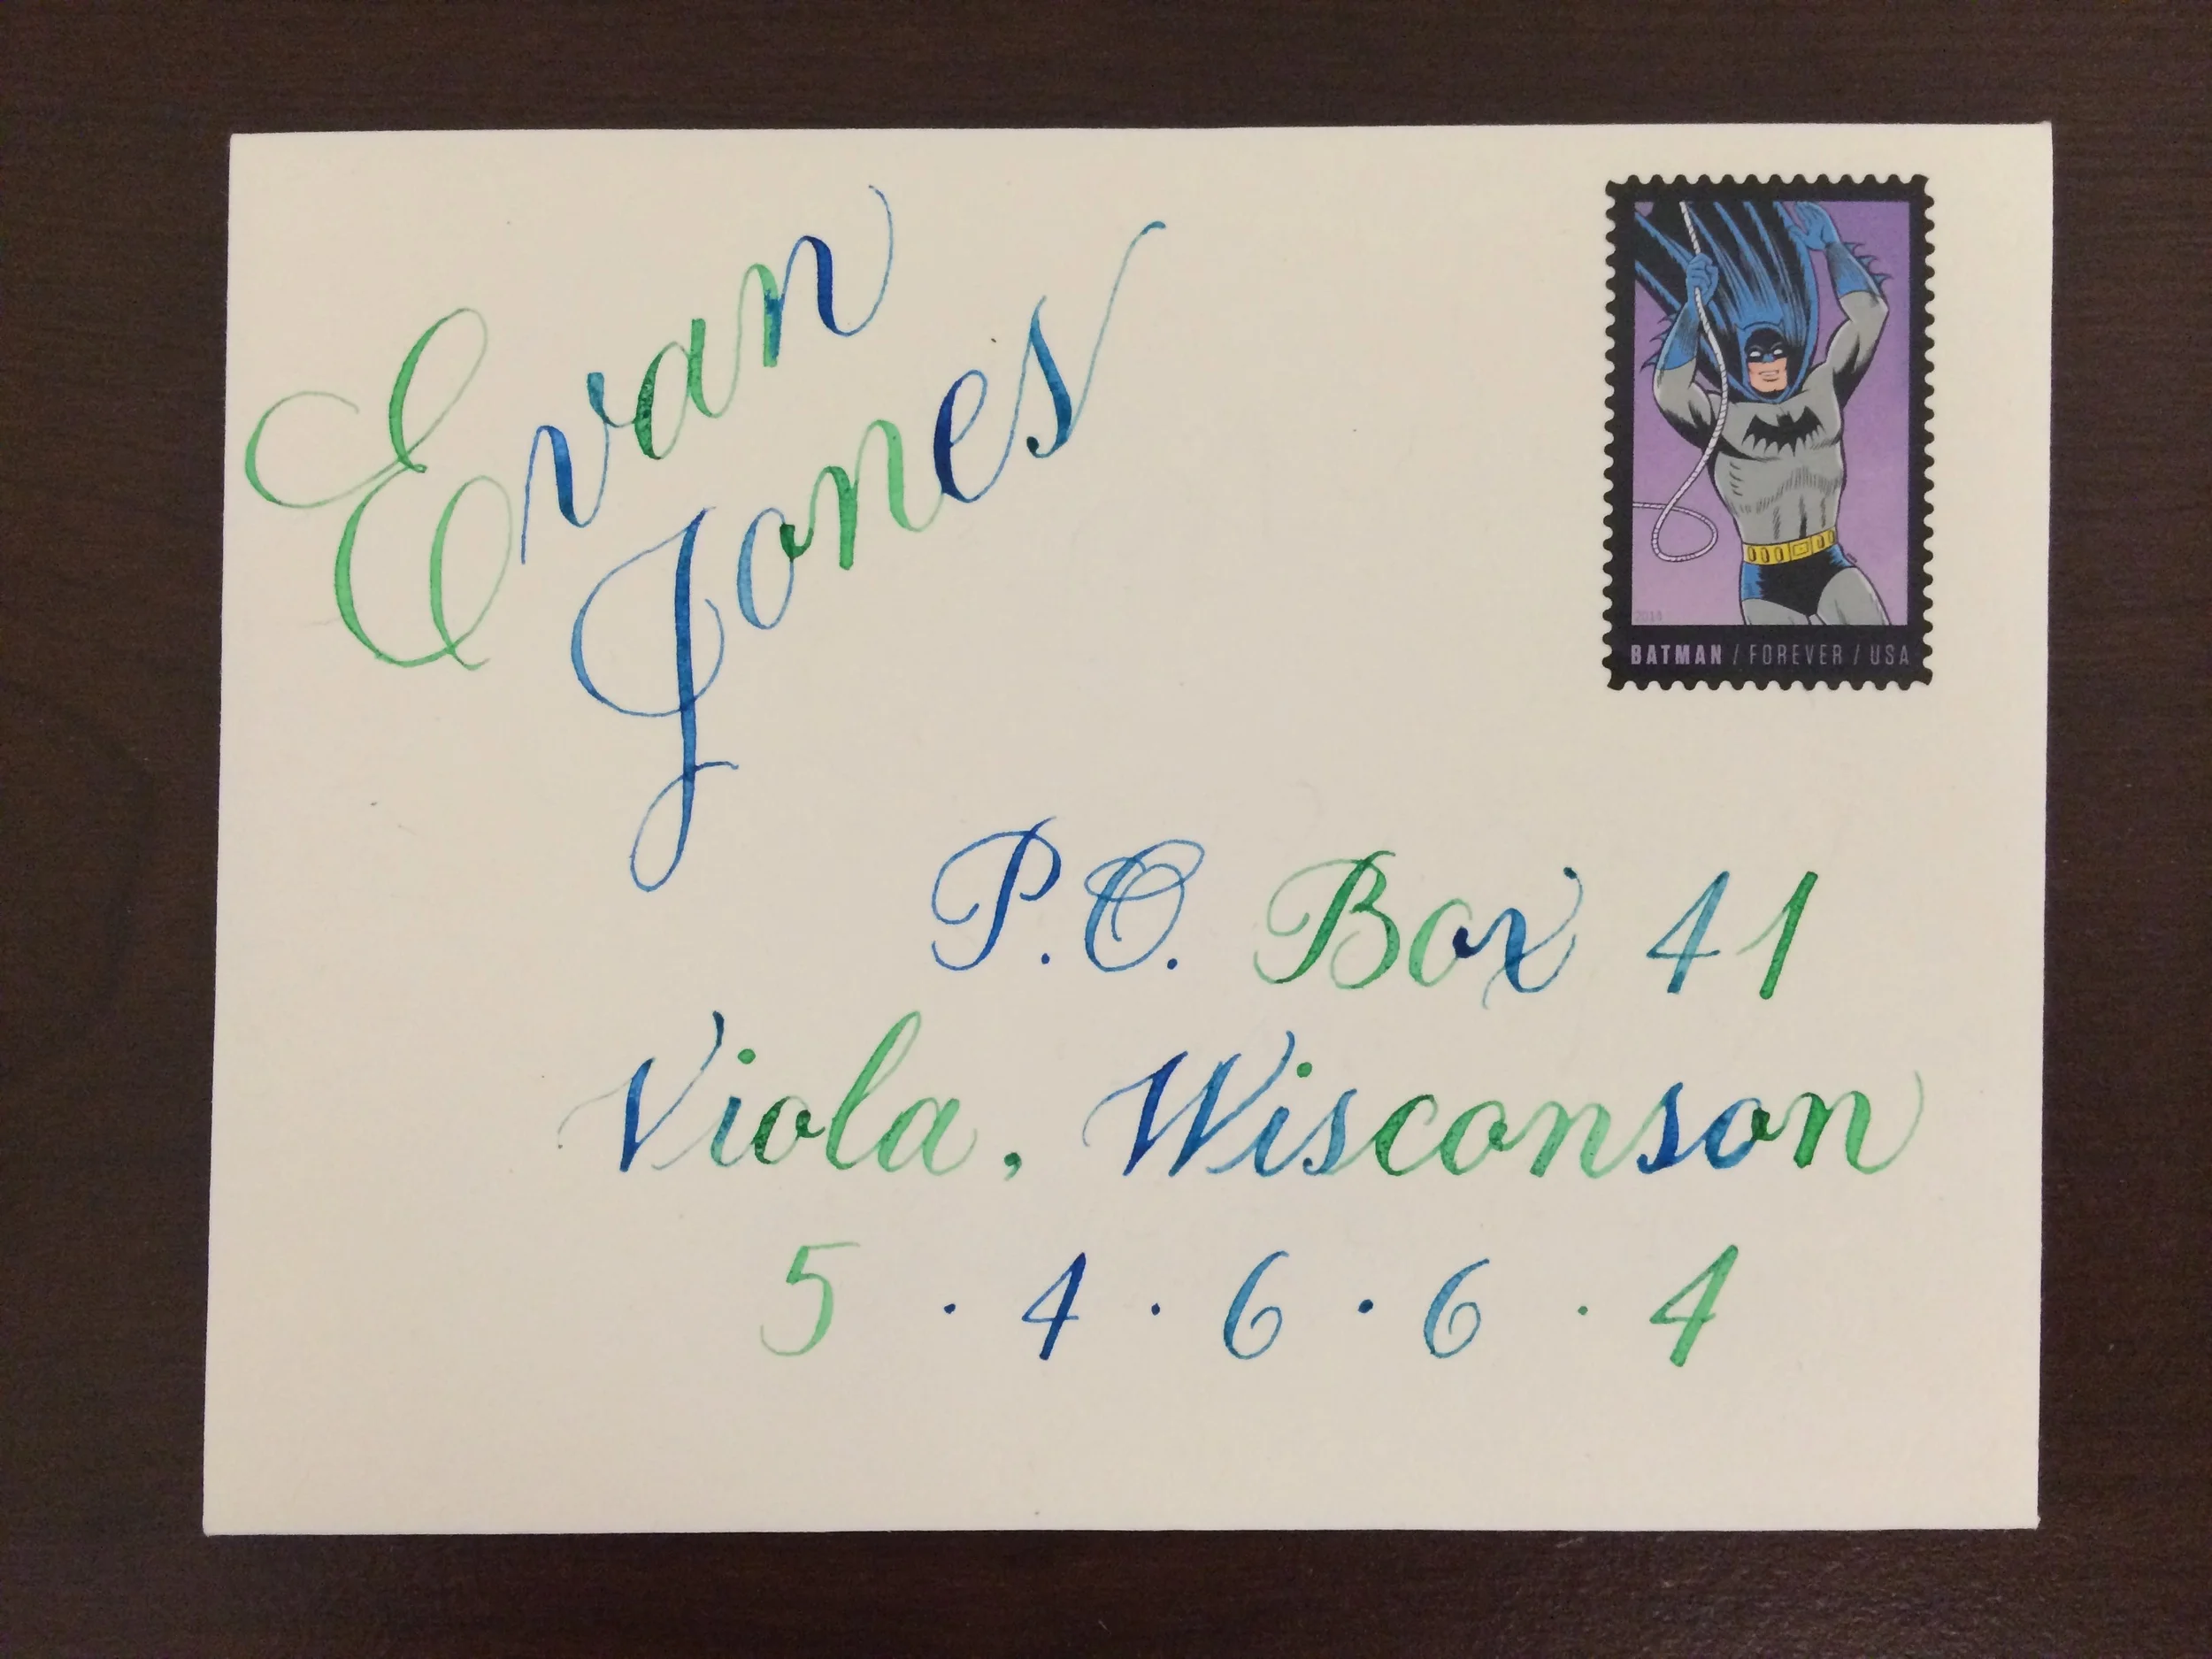 Evan
Jones
2014
BATMAN / FOREVER / USA
P.O. Box 41
Viola, Wisconson
5 · 4 · 6 · 6 · 4